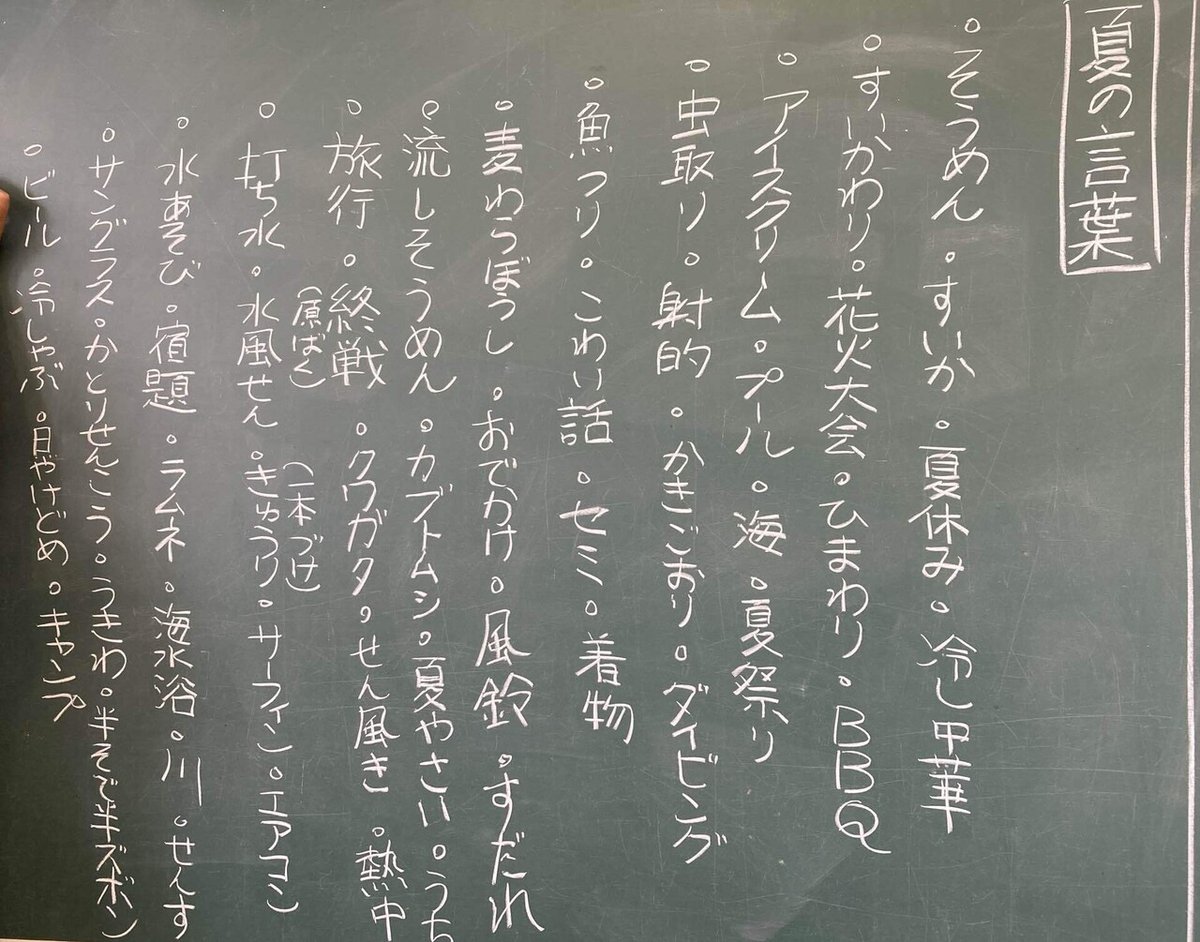 夏の言葉
。そうめん。すいか。夏休み。冷し中華
。すいかわり。花火大会。ひまわり。BBQ
。アイスクリーム。プール。海。夏祭り
。虫取り。射的。かきごおり。ダイビング
。魚つり。こわい話。セミ。着物
。麦わらぼうし。おでかけ。風鈴。すだれ
。流しそうめん。カブトムシ。夏やさい。うち
。旅行。終戦。クワガタ。せん風き。熱中
(原ばく)
(一本づけ)
。打ち水。水風せん。きゅうり。サーフィン。エアコン
。水あそび。宿題。ラムネ。海水浴。川。せんす
。サングラス。かとりせんこう。うきわ。半そで半ズボン
。ビール。冷しゃぶ。日やけどめ。キャンプ